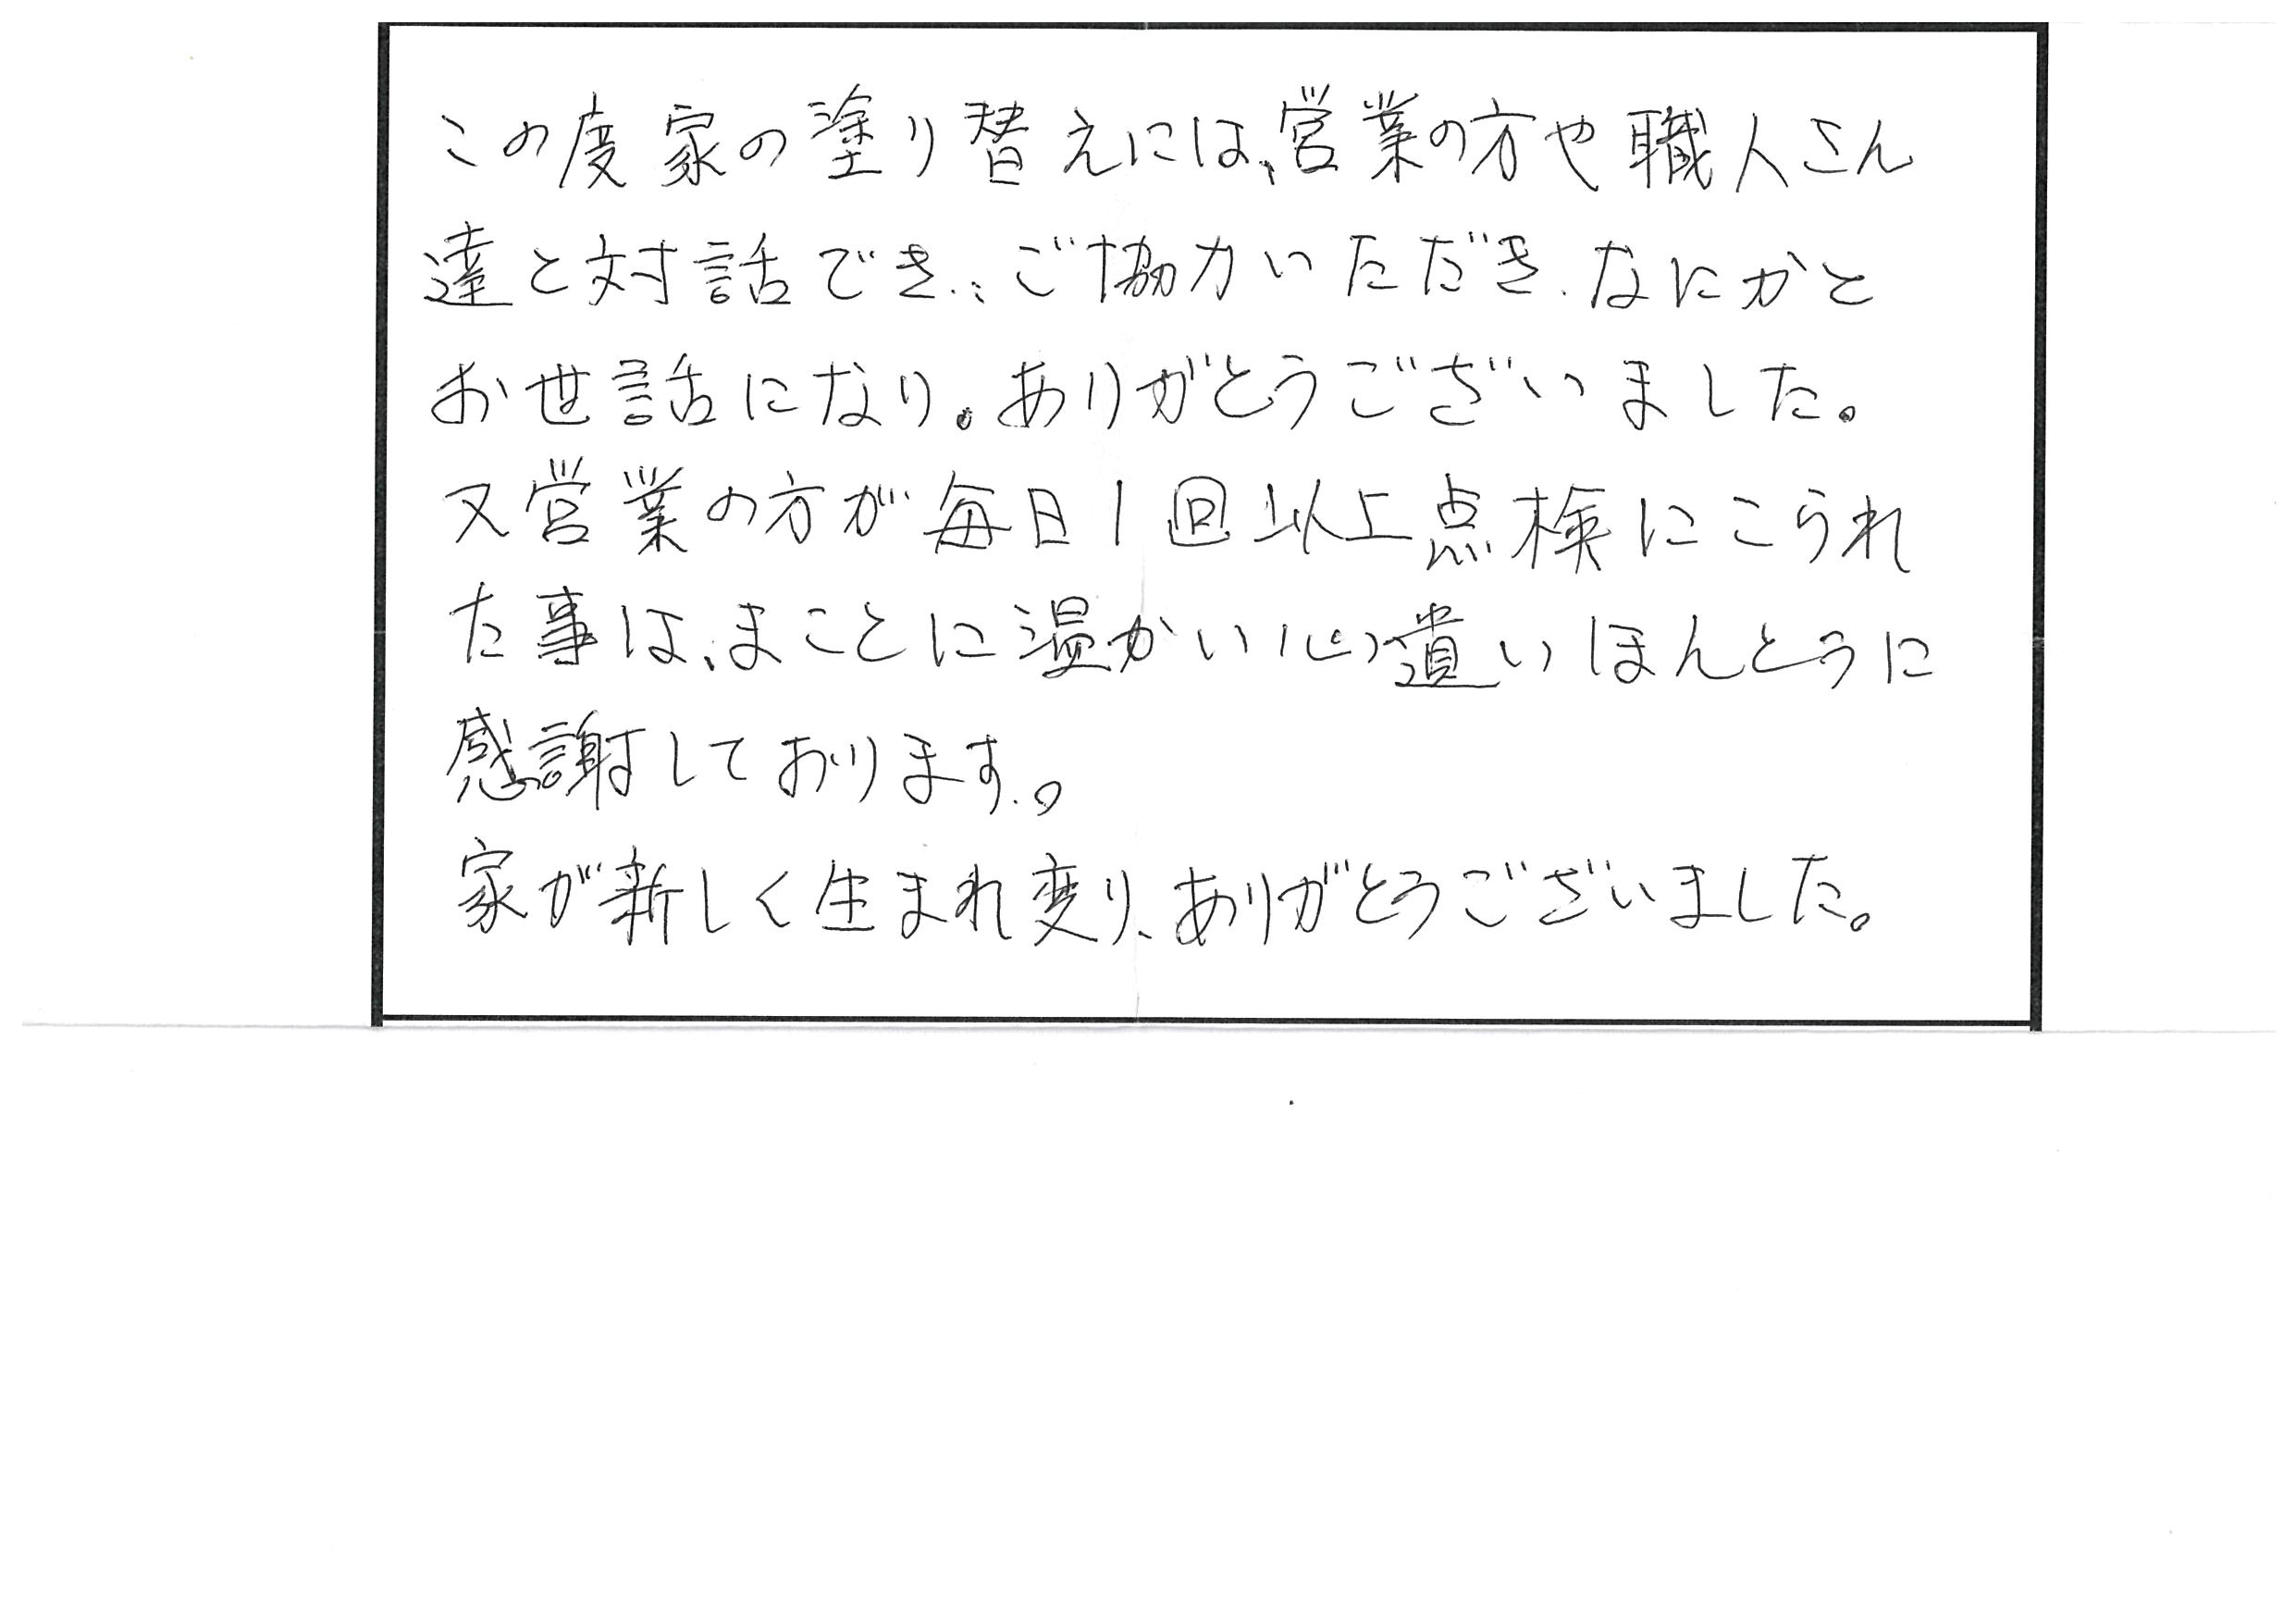 この度家の塗り替えには、営業の方や職人さん
達と対話でき、ご協力いただき、なにかと
お世話になり。ありがとうございました。
又営業の方が毎日1回以上点検にこられ
た事は、まことに温かい心遣いほんとうに
感謝しております。
家が新しく生まれ変り、ありがとうございました。